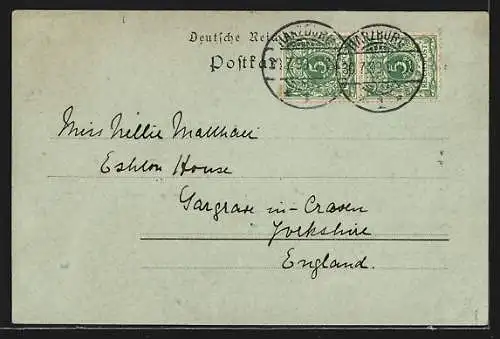 Deutsche Rei
Postkar
HARZBURG
HARZBURG
5
5
Miss Nellie Matthau
Eshton House
Gargrave-in-Craven
Yorkshire
England.